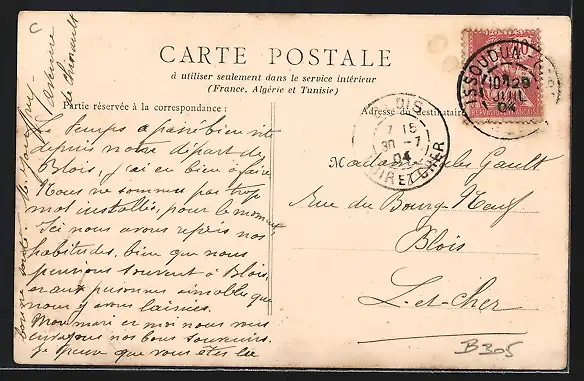 C
CARTE POSTALE
à utiliser seulement dans le service intérieur
(France, Algérie et Tunisie)
Partie réservée à la correspondance :
Adresse du destinataire
Le temps a passé bien vite
depuis notre départ de
Blois, j'ai eu bien à faire
Nous ne sommes pas trop
mal installés, pour le moment
Ici nous avons repris nos
habitudes, bien que nous
pensions souvent à Blois,
et aux personnes aimables que
nous y avons laissées.
Mon mari et moi nous vous
envoyons nos bons souvenirs.
Je pense que vous êtes
avenue
de Chinault
bonne santé.
ISSOUDUN
10
29
JUIL
04
BLOIS
7 15
30 -7
04
LOIR ET CHER
Madame Jules Gault
rue du Bourg Neuf
Blois
L-et-Cher
B305